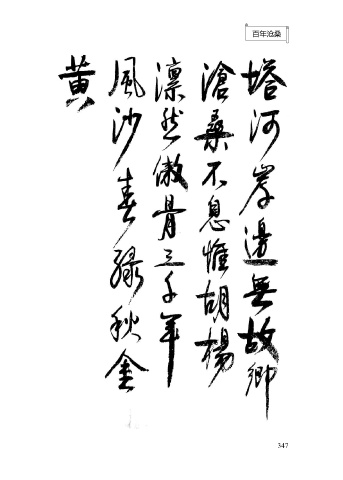 百年沧桑
塔河岸邊無故鄉
滄桑不息惟胡楊
凛然傲骨三千年
風沙春綠秋金
黄
347